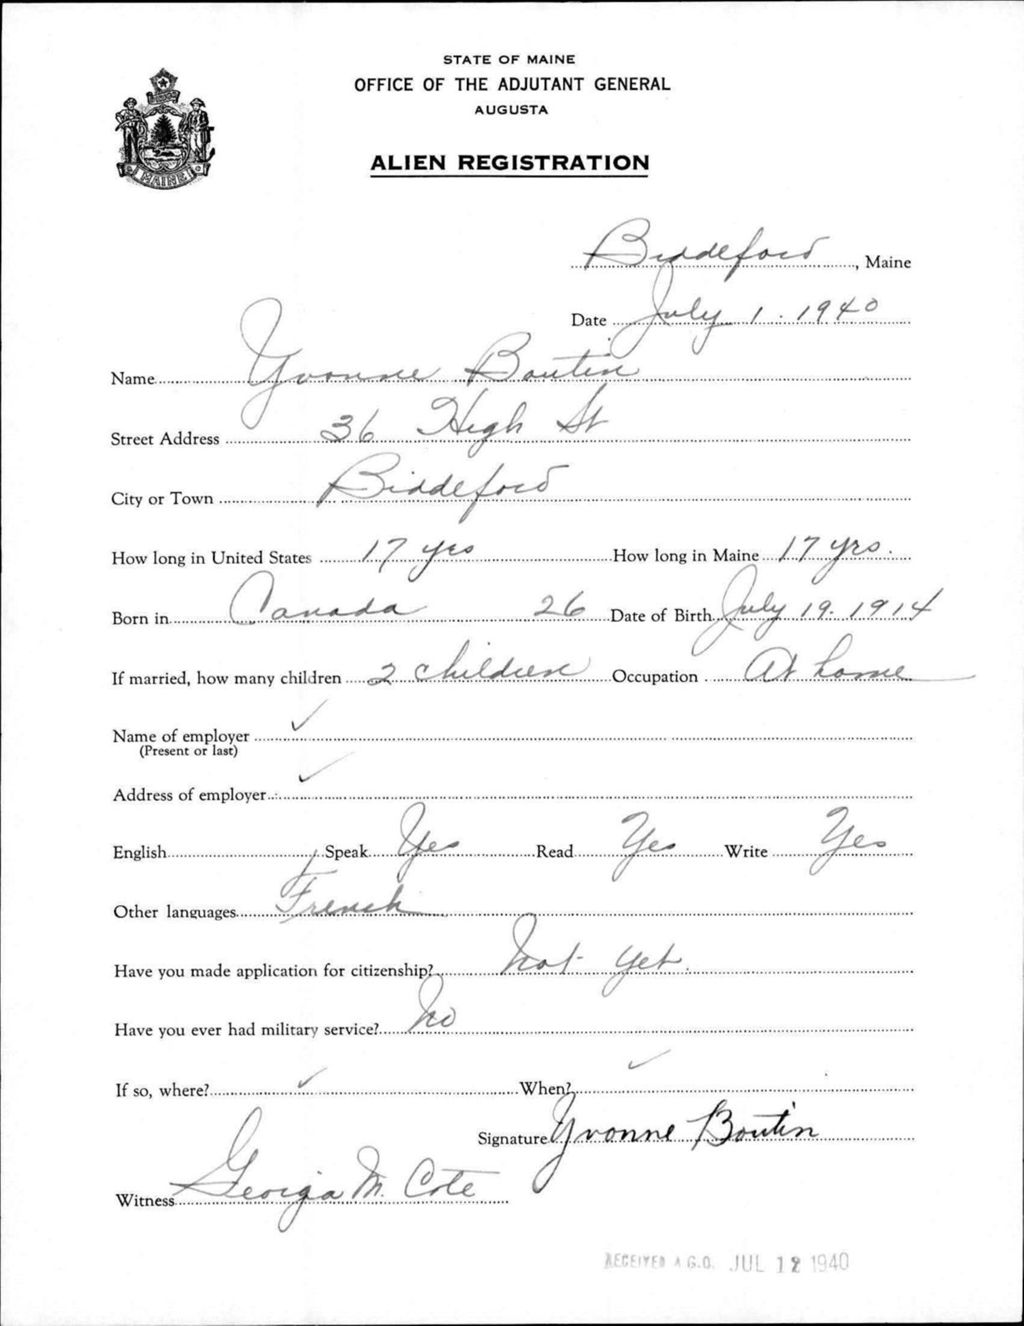 STATE OF MAINE
OFFICE OF THE ADJUTANT GENERAL
AUGUSTA
MAINE
ALIEN REGISTRATION
Biddeford, Maine
Date July 1. 1940
Name Yvonne Boutin
Street Address 36 High St
City or Town Biddeford
How long in United States 17 yrs How long in Maine 17 yrs.
Born in Canada 26 Date of Birth July 19. 1914
If married, how many children 2 children Occupation At home
Name of employer ✓
(Present or last)
Address of employer ✓
English Speak Yes Read Yes Write Yes
Other languages French
Have you made application for citizenship? Not yet.
Have you ever had military service? No
If so, where? ✓ When? ✓
Signature Yvonne Boutin
Witness Georgia M. Cote
RECEIVED A.G.O. JUL 12 1940